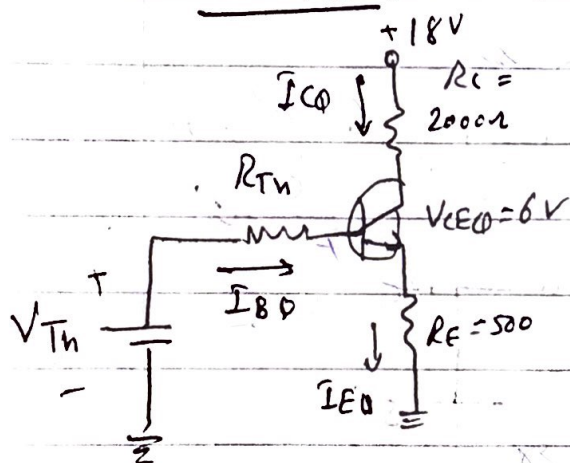 +18V
ICQ
RC =
2000Ω
RTh
VCEQ=6V
+
IBQ
VTh
RE=500
-
IEQ